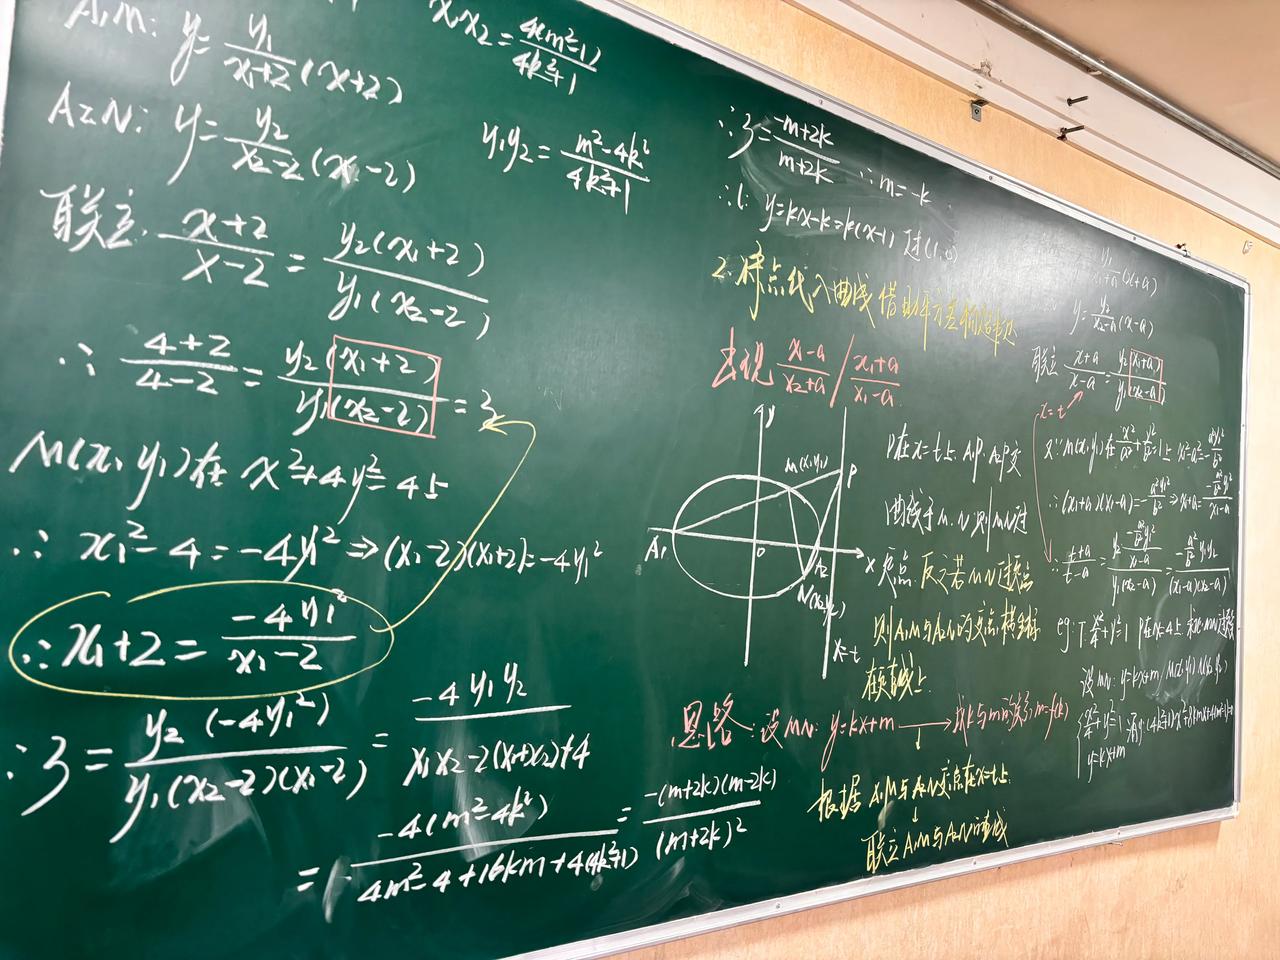 A₁M: y=\frac{y₁}{x₁+2}(x+2)
x₁x₂=\frac{4(m²-1)}{4k²+1}
A₂N: y=\frac{y₂}{x₂-2}(x-2)
y₁y₂=\frac{m²-4k²}{4k²+1}
联立. \frac{x+2}{x-2}=\frac{y₂(x₁+2)}{y₁(x₂-2)}
∴ \frac{4+2}{4-2}=\frac{y₂(x₁+2)}{y₁(x₂-2)}=3
M(x₁ y₁)在 x²+4y²=4上
∴ x₁²-4=-4y₁²⇒(x₁-2)(x₁+2)=-4y₁²
∴ x₁+2=\frac{-4y₁²}{x₁-2}
∴ 3=\frac{y₂(-4y₁²)}{y₁(x₂-2)(x₁-2)}=\frac{-4y₁y₂}{x₁x₂-2(x₁+x₂)+4}
=\frac{-4(m²-4k²)}{4m²-4+16km+4(4k²+1)}=\frac{-(m+2k)(m-2k)}{(m+2k)²}
∴ 3=\frac{-m+2k}{m+2k} ∴ m=-k
∴ l: y=kx-k=k(x-1) 过(1,0)
出现 \frac{x₁-a}{x₂+a}/\frac{x₁+a}{x₁-a}
y
M(x₁y₁)
P
A₁
o
A₂
x
N(x₂y₂)
x=t
P在x=t上 A₁P. A₂P交
曲线于M.N 则MN过
定点 反之若MN过定点
则A₁M与A₂N的交点横坐标
在定直线上
思路: 设MN: y=kx+m → 找k与m的关系 m=f(k)
根据 A₁M与A₂N交点在x=t上
↓
联立A₁M与A₂N
\frac{y₁}{x₁+a}(x+a)
y=\frac{y₂}{x₂-a}(x-a)
联立 \frac{x+a}{x-a}=\frac{y₂(x₁+a)}{y₁(x₂-a)}
x=t
又∵M(x₁y₁)在\frac{x²}{a²}+\frac{y²}{b²}=1上 x₁²-a²=-\frac{a²y₁²}{b²}
∴(x₁+a)(x₁-a)=-\frac{a²y₁²}{b²}⇒x₁+a=\frac{-\frac{a²}{b²}y₁²}{x₁-a}
∴\frac{t+a}{t-a}=\frac{y₂\frac{-\frac{a²}{b²}y₁²}{x₁-a}}{y₁(x₂-a)}=\frac{-\frac{a²}{b²}y₁y₂}{(x₁-a)(x₂-a)}
eg: T: \frac{x²}{4}+y²=1 P在x=4上 求证MN过定点
设MN: y=kx+m, M(x₁y₁) N(x₂y₂)
\frac{x²}{4}+y²=1
y=kx+m